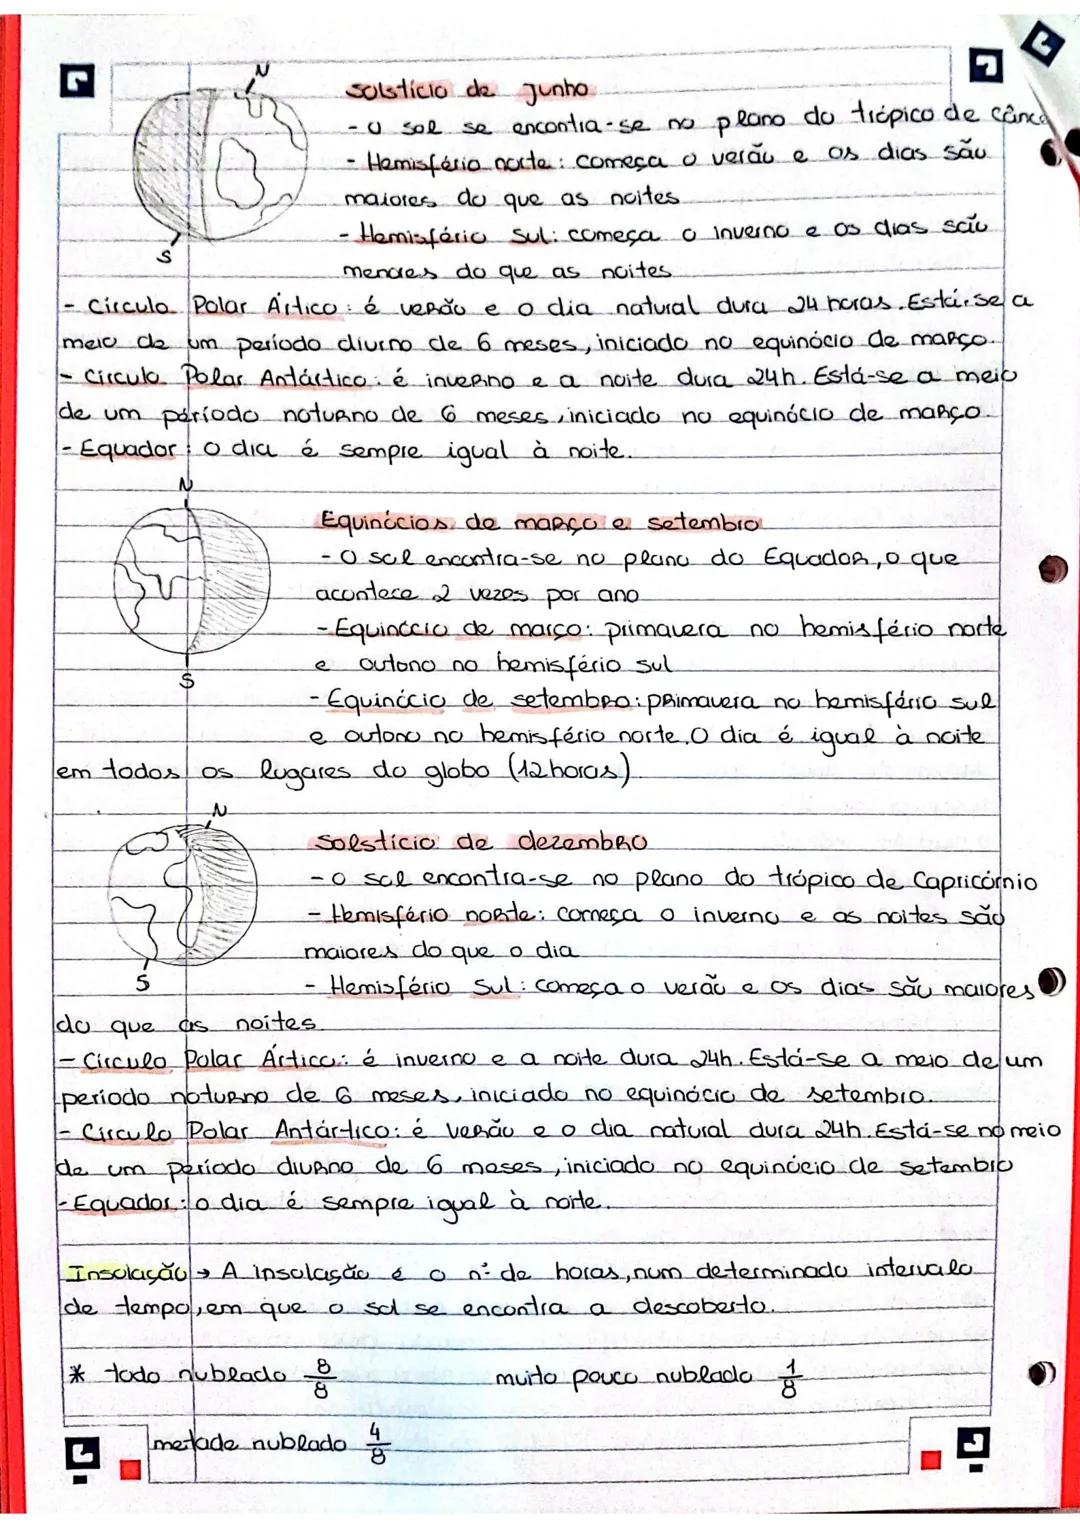 N
Solstício de Junho
- O sol se encontra-se no plano do trópico de cânce
- Hemisfério norte: começa o verão e os dias são
maiores do que as noites
S
- Hemisfério Sul: começa o inverno e os dias são
menores do que as noites
- Circulo Polar Ártico: é verão e o dia natural dura 24 horas. Está-se a
meio de um período diurno de 6 meses, iniciado no equinócio de março.
- Circulo Polar Antártico: é inverno e a noite dura 24h. Está-se a meio
de um período noturno de 6 meses, iniciado no equinócio de março.
- Equador: o dia é sempre igual à noite.
N
Equinócios de março e setembro
- O sol encontra-se no plano do Equador, o que
acontece 2 vezes por ano
- Equinócio de março: primavera no hemisfério norte
e outono no hemisfério sul
S
- Equinócio de setembro: primavera no hemisfério sul
e outono no hemisfério norte. O dia é igual à noite
em todos os lugares do globo (12 horas)
N
Solstício de dezembro
- O sol encontra-se no plano do trópico de Capricórnio
- Hemisfério norte: começa o inverno e as noites são
maiores do que o dia
S
- Hemisfério Sul: começa o verão e os dias são maiores
do que as noites
- Circulo Polar Ártico: é inverno e a noite dura 24h. Está-se a meio de um
período noturno de 6 meses, iniciado no equinócio de setembro.
- Circulo Polar Antártico: é verão e o dia natural dura 24h. Está-se no meio
de um período diurno de 6 meses, iniciado no equinócio de setembro
- Equador: o dia é sempre igual à noite.
Insolação → A insolação é o nº de horas, num determinado intervalo
de tempo, em que o sol se encontra a descoberto.
* todo nublado 8/8 muito pouco nublado 1/8
metade nublado 4/8